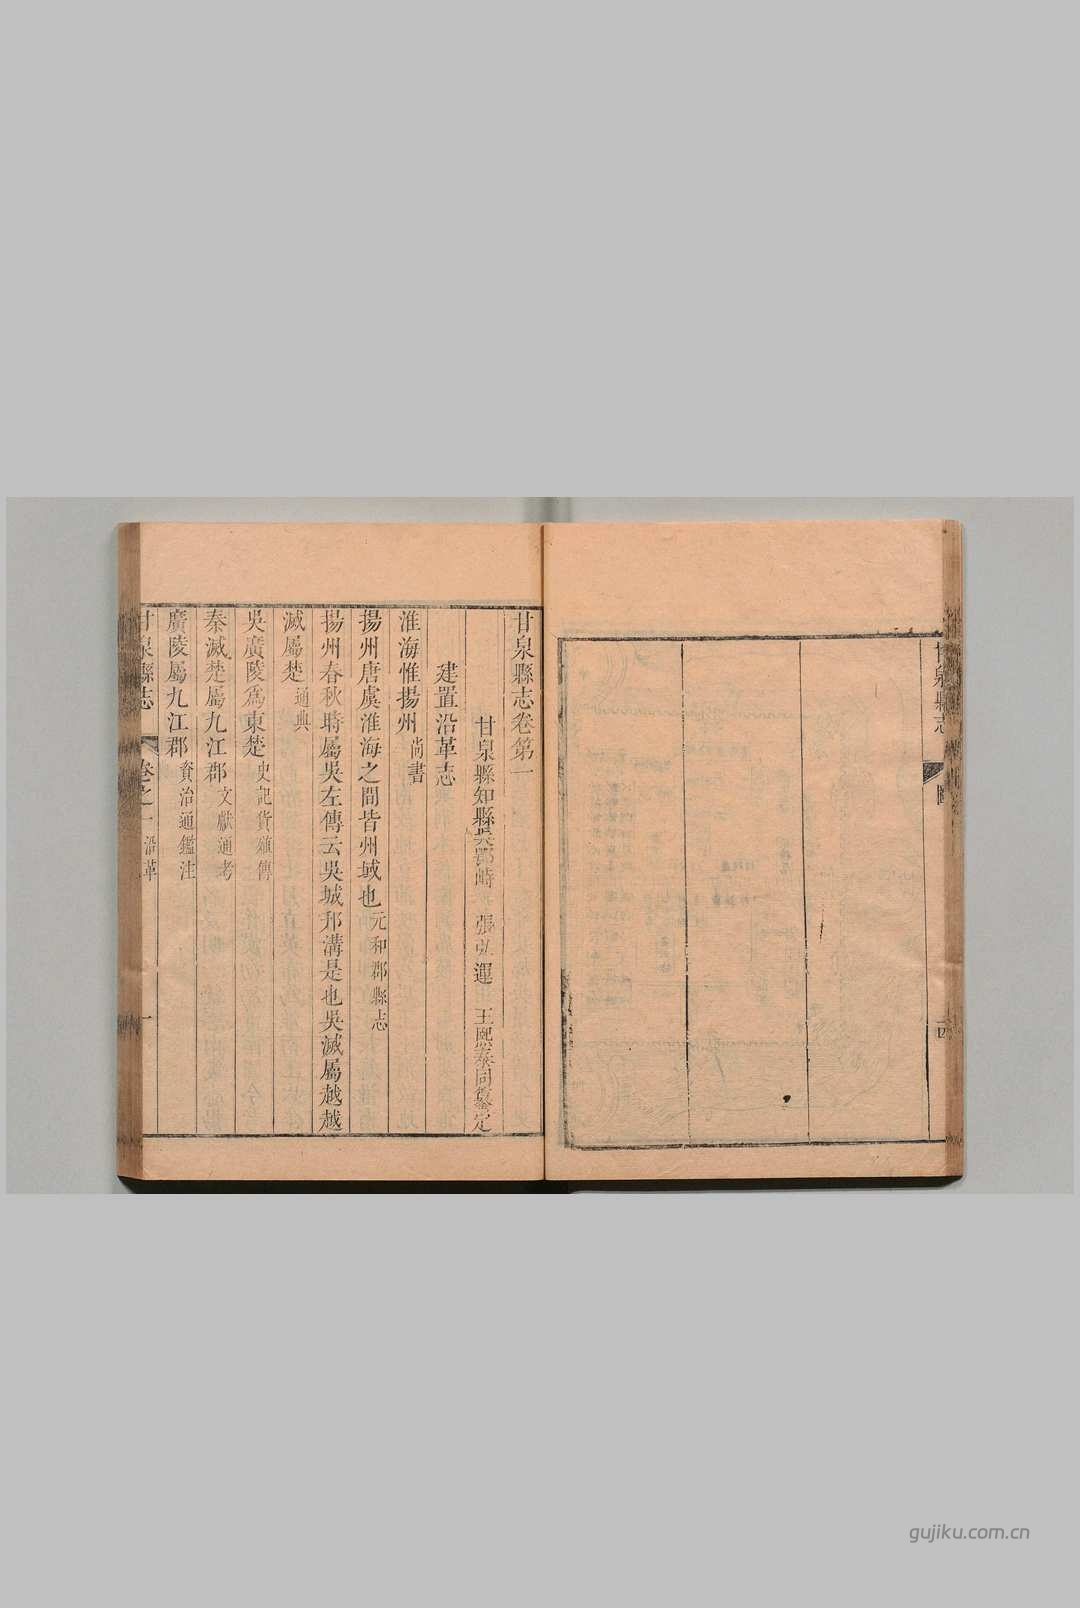 甘泉縣志
圖
四
甘泉縣志卷第一
甘泉縣知縣吳鄂峙 張弘運 王熙泰同鑒定
建置沿革志
淮海惟揚州尚書
揚州唐虞淮海之間皆州域也元和郡縣志
揚州春秋時屬吳左傳云吳城邗溝是也吳滅屬越越
滅屬楚通典
吳廣陵為東楚史記貨殖傳
秦滅楚屬九江郡文獻通考
廣陵屬九江郡資治通鑑注
甘泉縣志
卷之一 沿革
一
gujiku.com.cn